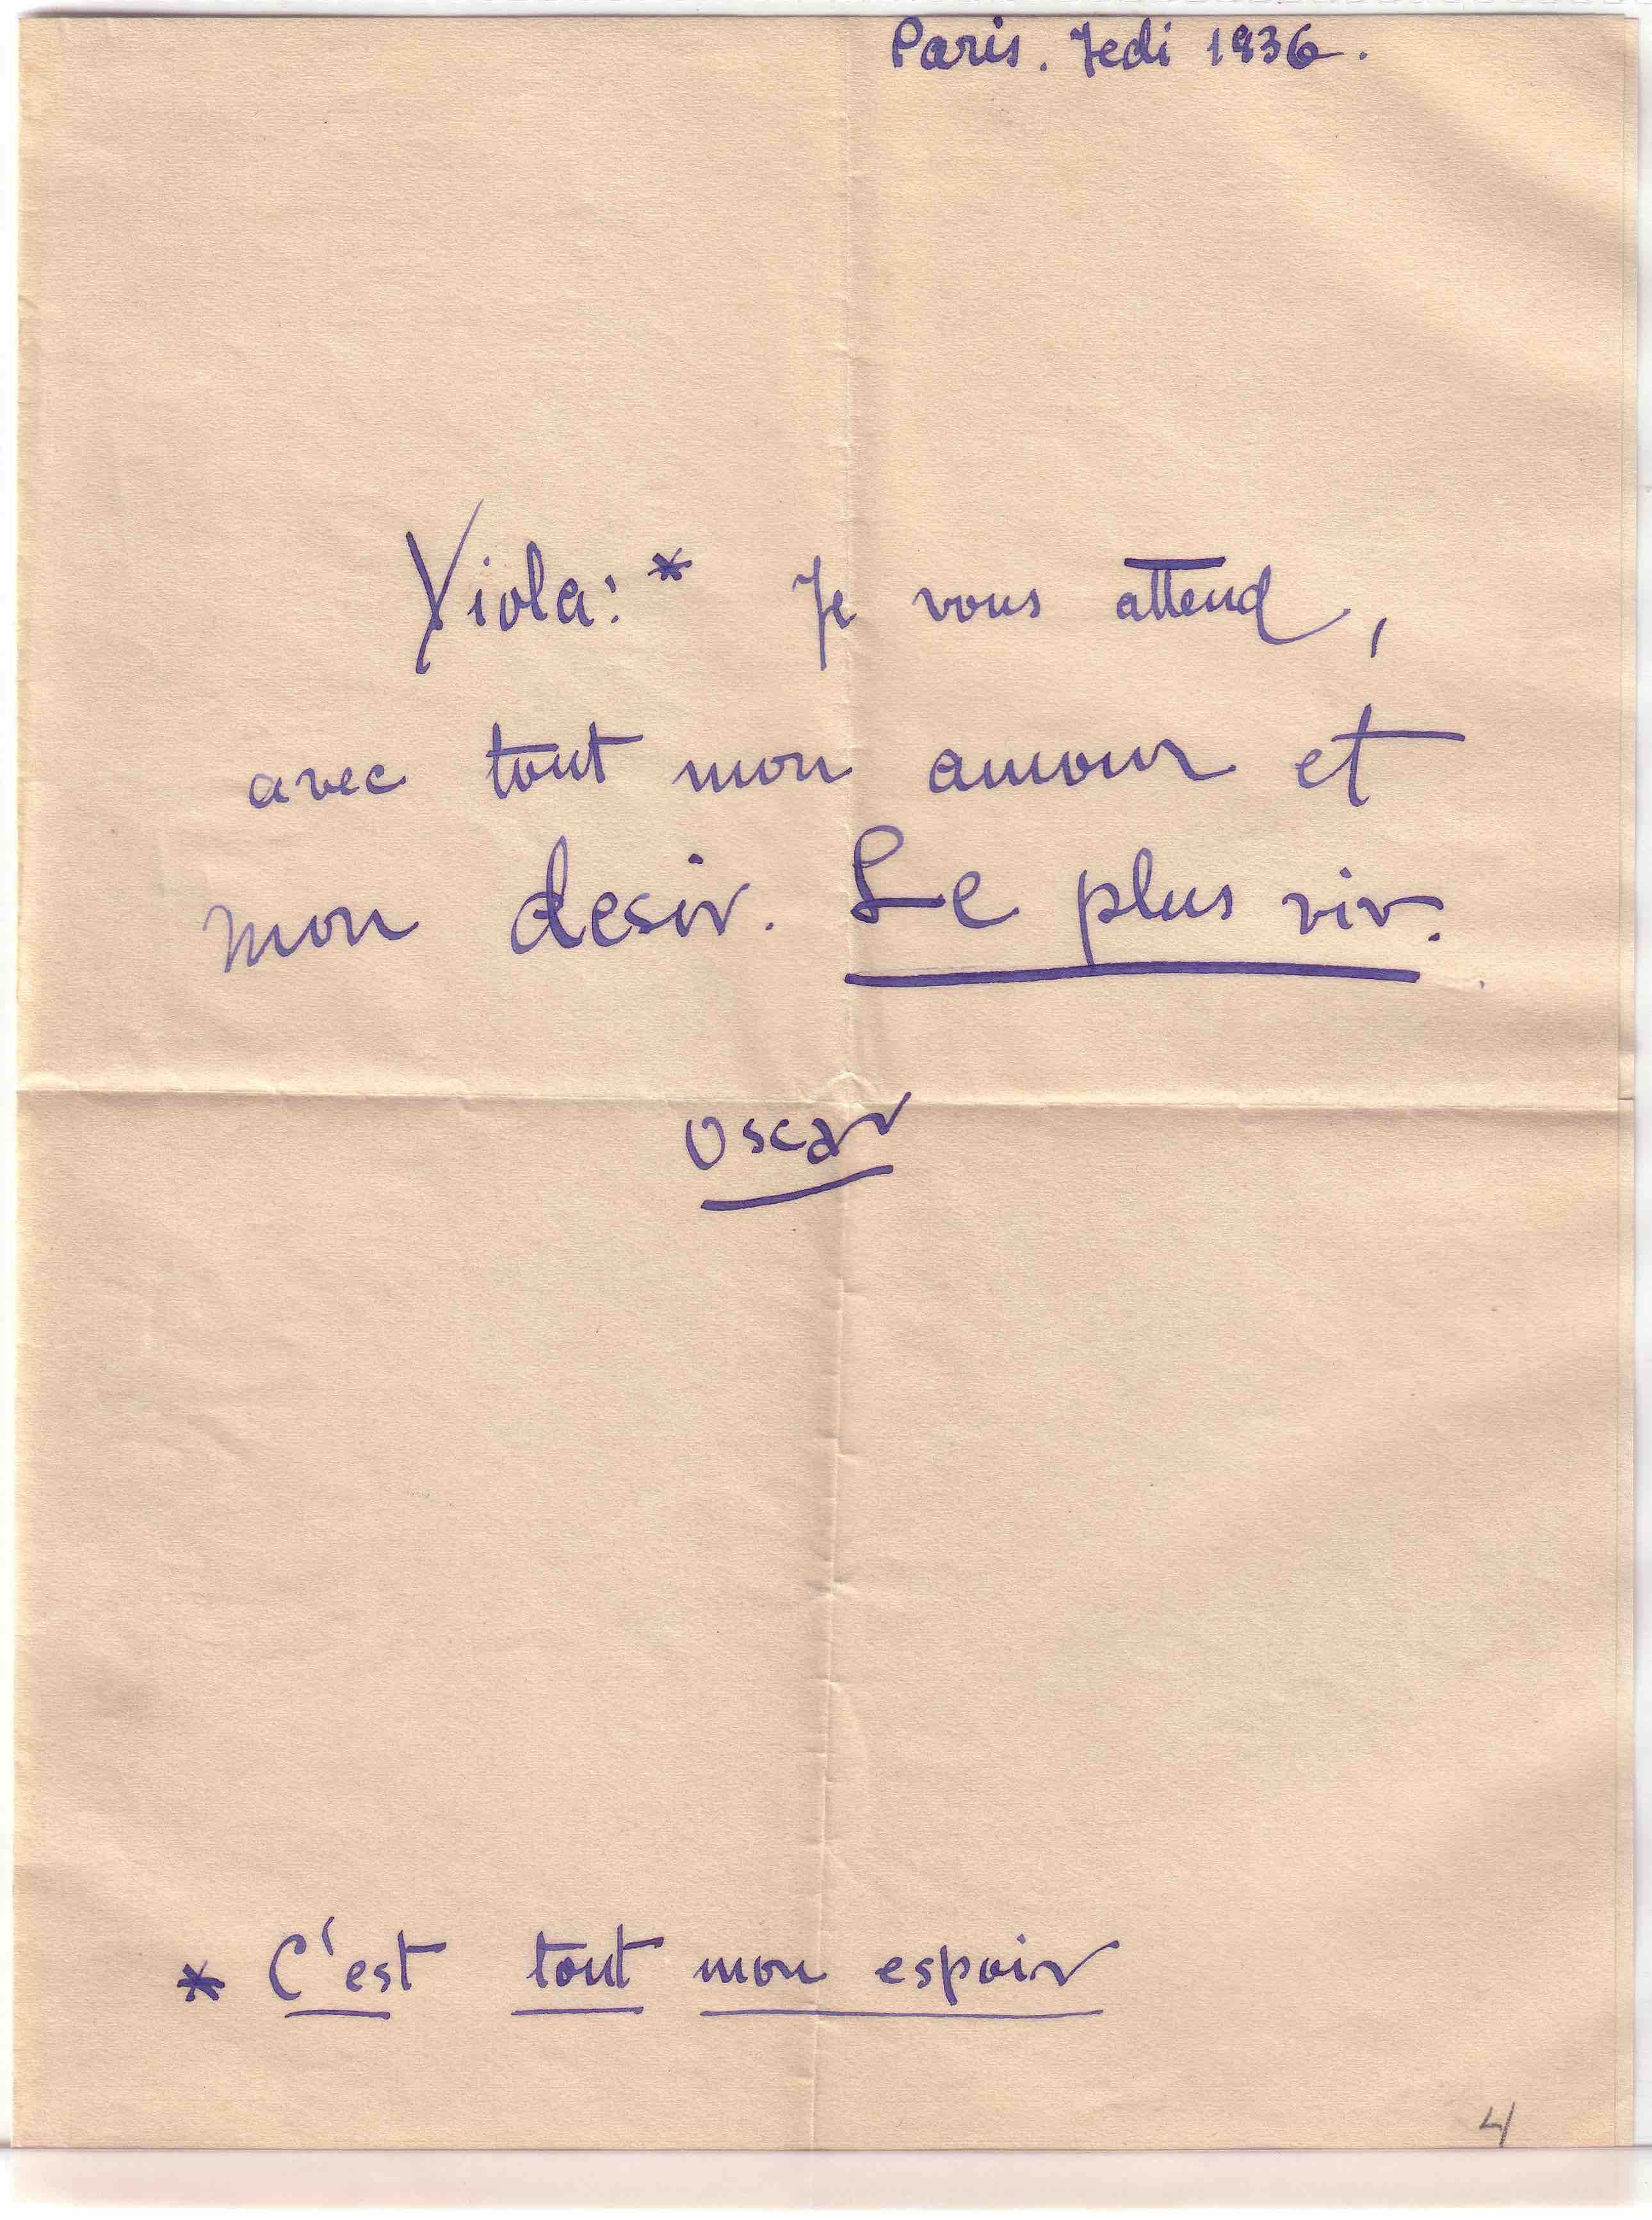 Paris. Jedi 1936.
Viola:* Je vous attend,
avec tout mon amour et
mon desir. Le plus viv.
Oscar
* C'est tout mon espoir
4